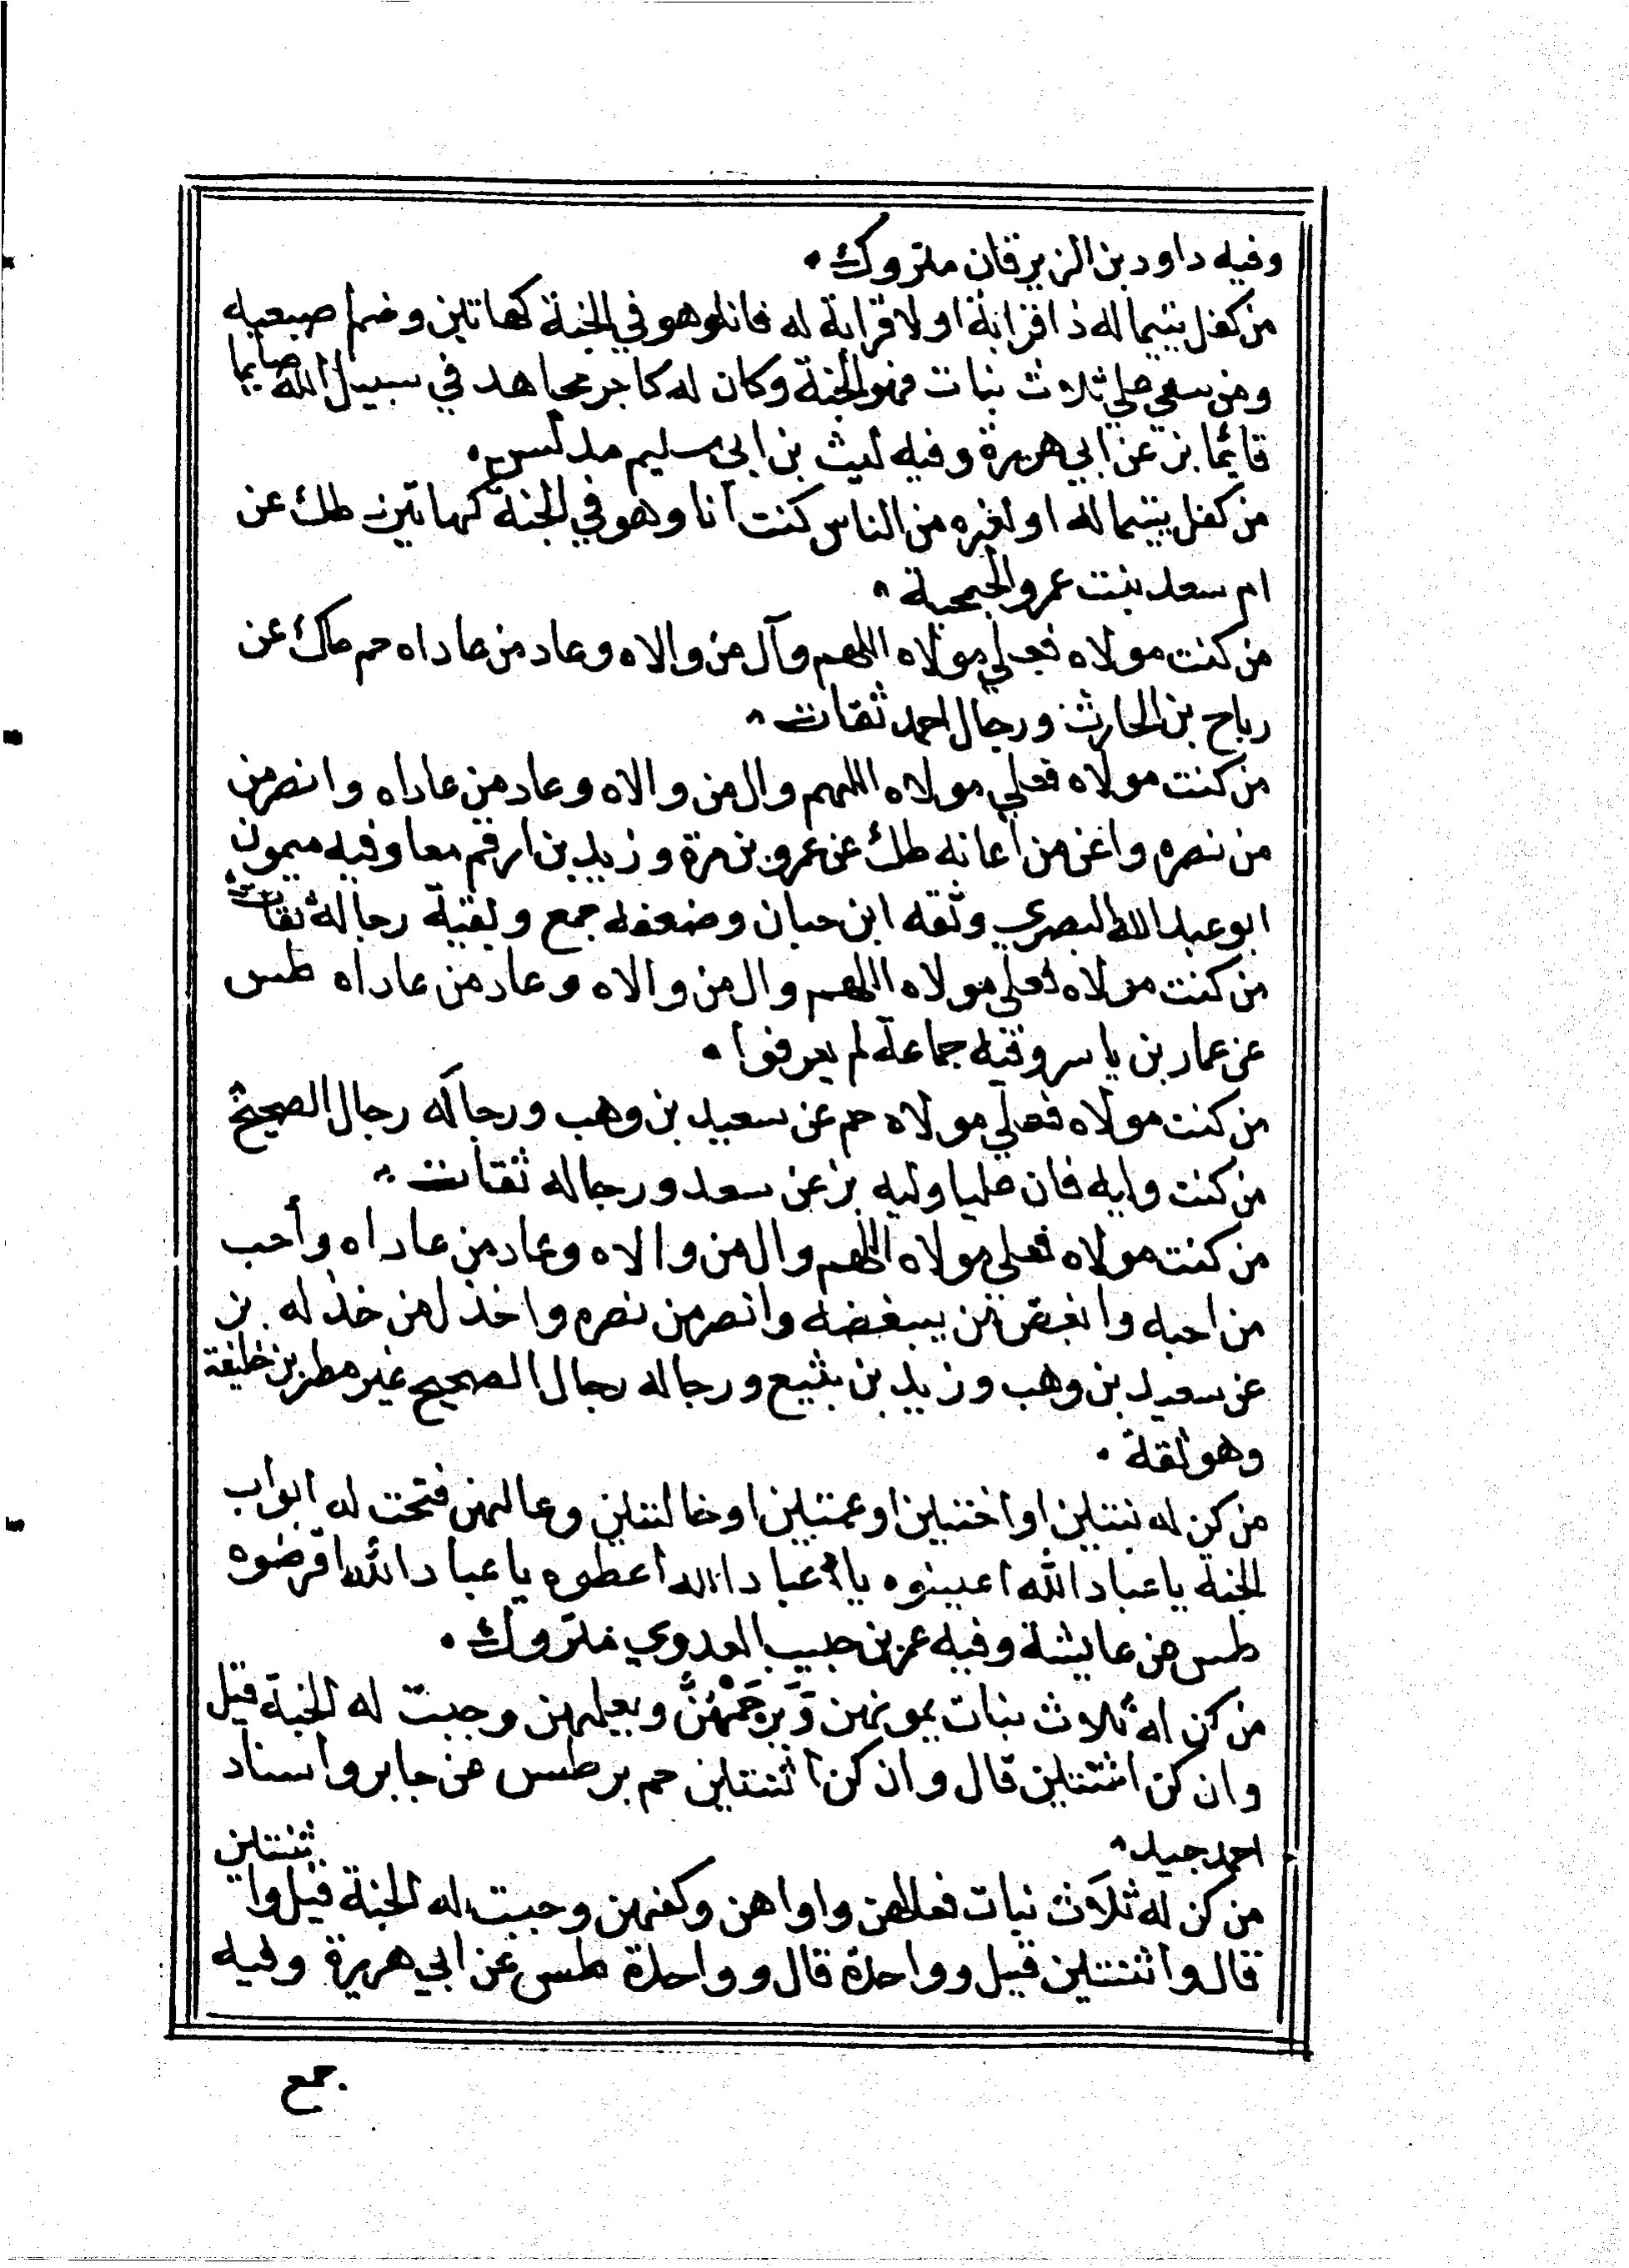 وفيه داود بن الزبرقان متروك
من كفل يتيما له ذا قرابة او لا قرابة له فانا وهو في الجنة كهاتين وضم اصبعيه
ومن سعي علي ثلاث بنات فهو الجنة وكان له كاجر مجاهد في سبيل الله صايما
قايما بز عن ابي هريرة وفيه ليث بن ابي سليم مدلس
من كفل يتيما له او لغيره من الناس كنت انا وهو في الجنة كهاتين طك عن
ام سعد بنت عمرو الجمحية
من كنت مولاه فعلي مولاه اللهم وآل من والاه وعاد من عاداه حم طك عن
رباح بن الحارث ورجال احمد ثقات
من كنت مولاه فعلي مولاه اللهم وال من والاه وعاد من عاداه وانصر من
من نصره واعن من اعانه طك عن عمرو بن مرة وزيد بن ارقم معا وفيه ميمون
ابو عبد الله البصري وثقه ابن حبان وضعفه جمع وبقية رجاله ثقات
من كنت مولاه فعلي مولاه اللهم وال من والاه وعاد من عاداه طس
عن عمار بن ياسر وفيه جماعة لم يعرفوا
من كنت مولاه فعلي مولاه حم عن سعيد بن وهب ورجاله رجال الصحيح
من كنت وليه فان عليا وليه بز عن سعد ورجاله ثقات
من كنت مولاه فعلي مولاه اللهم وال من والاه وعاد من عاداه وأحب
من احبه وابغض من يبغضه وانصر من نصره واخذل من خذله بز
عن سعيد بن وهب وزيد بن يثيع ورجاله رجال الصحيح غير مطر بن خليفة
وهو ثقة
من كن له بنتين او اختين او عمتين او خالتين وعالهن فتحت له ابواب
الجنة يا عباد الله اعينوه يا عباد الله اعطوه يا عباد الله اقرضوه
طس عن عايشة وفيه عمر بن حبيب العدوي متروك
من كن له ثلاث بنات يمونهن وَيرحَمْهُنَّ ويعيلهن وجبت له الجنة قيل
وان كن اثنتين قال وان كن اثنتين حم بر طس عن جابر واسناد
احمد جيد
من كن له ثلاث بنات فعالهن واواهن وكفهن وجبت له الجنة قيل وا ثنتين
قال واثنتين قيل وواحدة قال وواحدة طس عن ابي هريرة وفيه
جمع